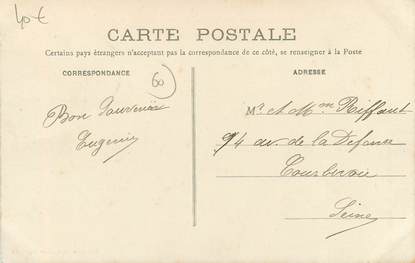 40 €
CARTE POSTALE
Certains pays étrangers n'acceptant pas la correspondance de ce côté, se renseigner à la Poste
CORRESPONDANCE
60
ADRESSE
Bon Souvenir
Eugenie
Mr et Mme Riffaut
94 av. de la Defense
Courbevoie
Seine